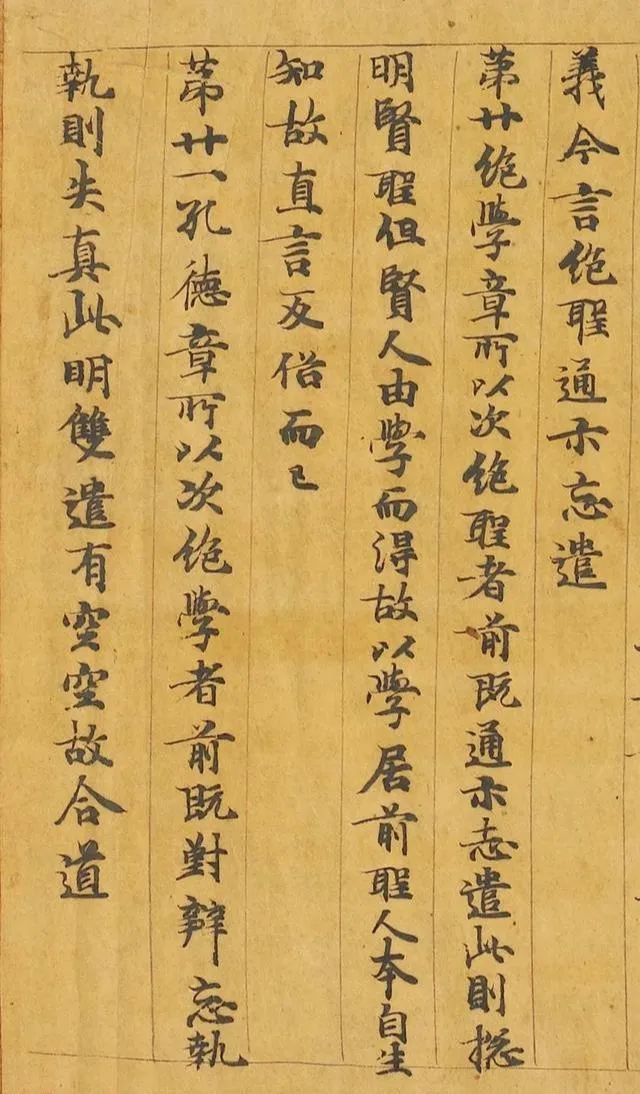 義今言絶聖通示忘遣
苐廿絶學章所以次絶聖者前既通示忘遣此則揔
明賢聖但賢人由學而得故以學居前聖人本自生
知故直言反俗而已
苐廿一孔德章所以次絶學者前既對辯忘執
執則失真此明雙遣有空空故合道